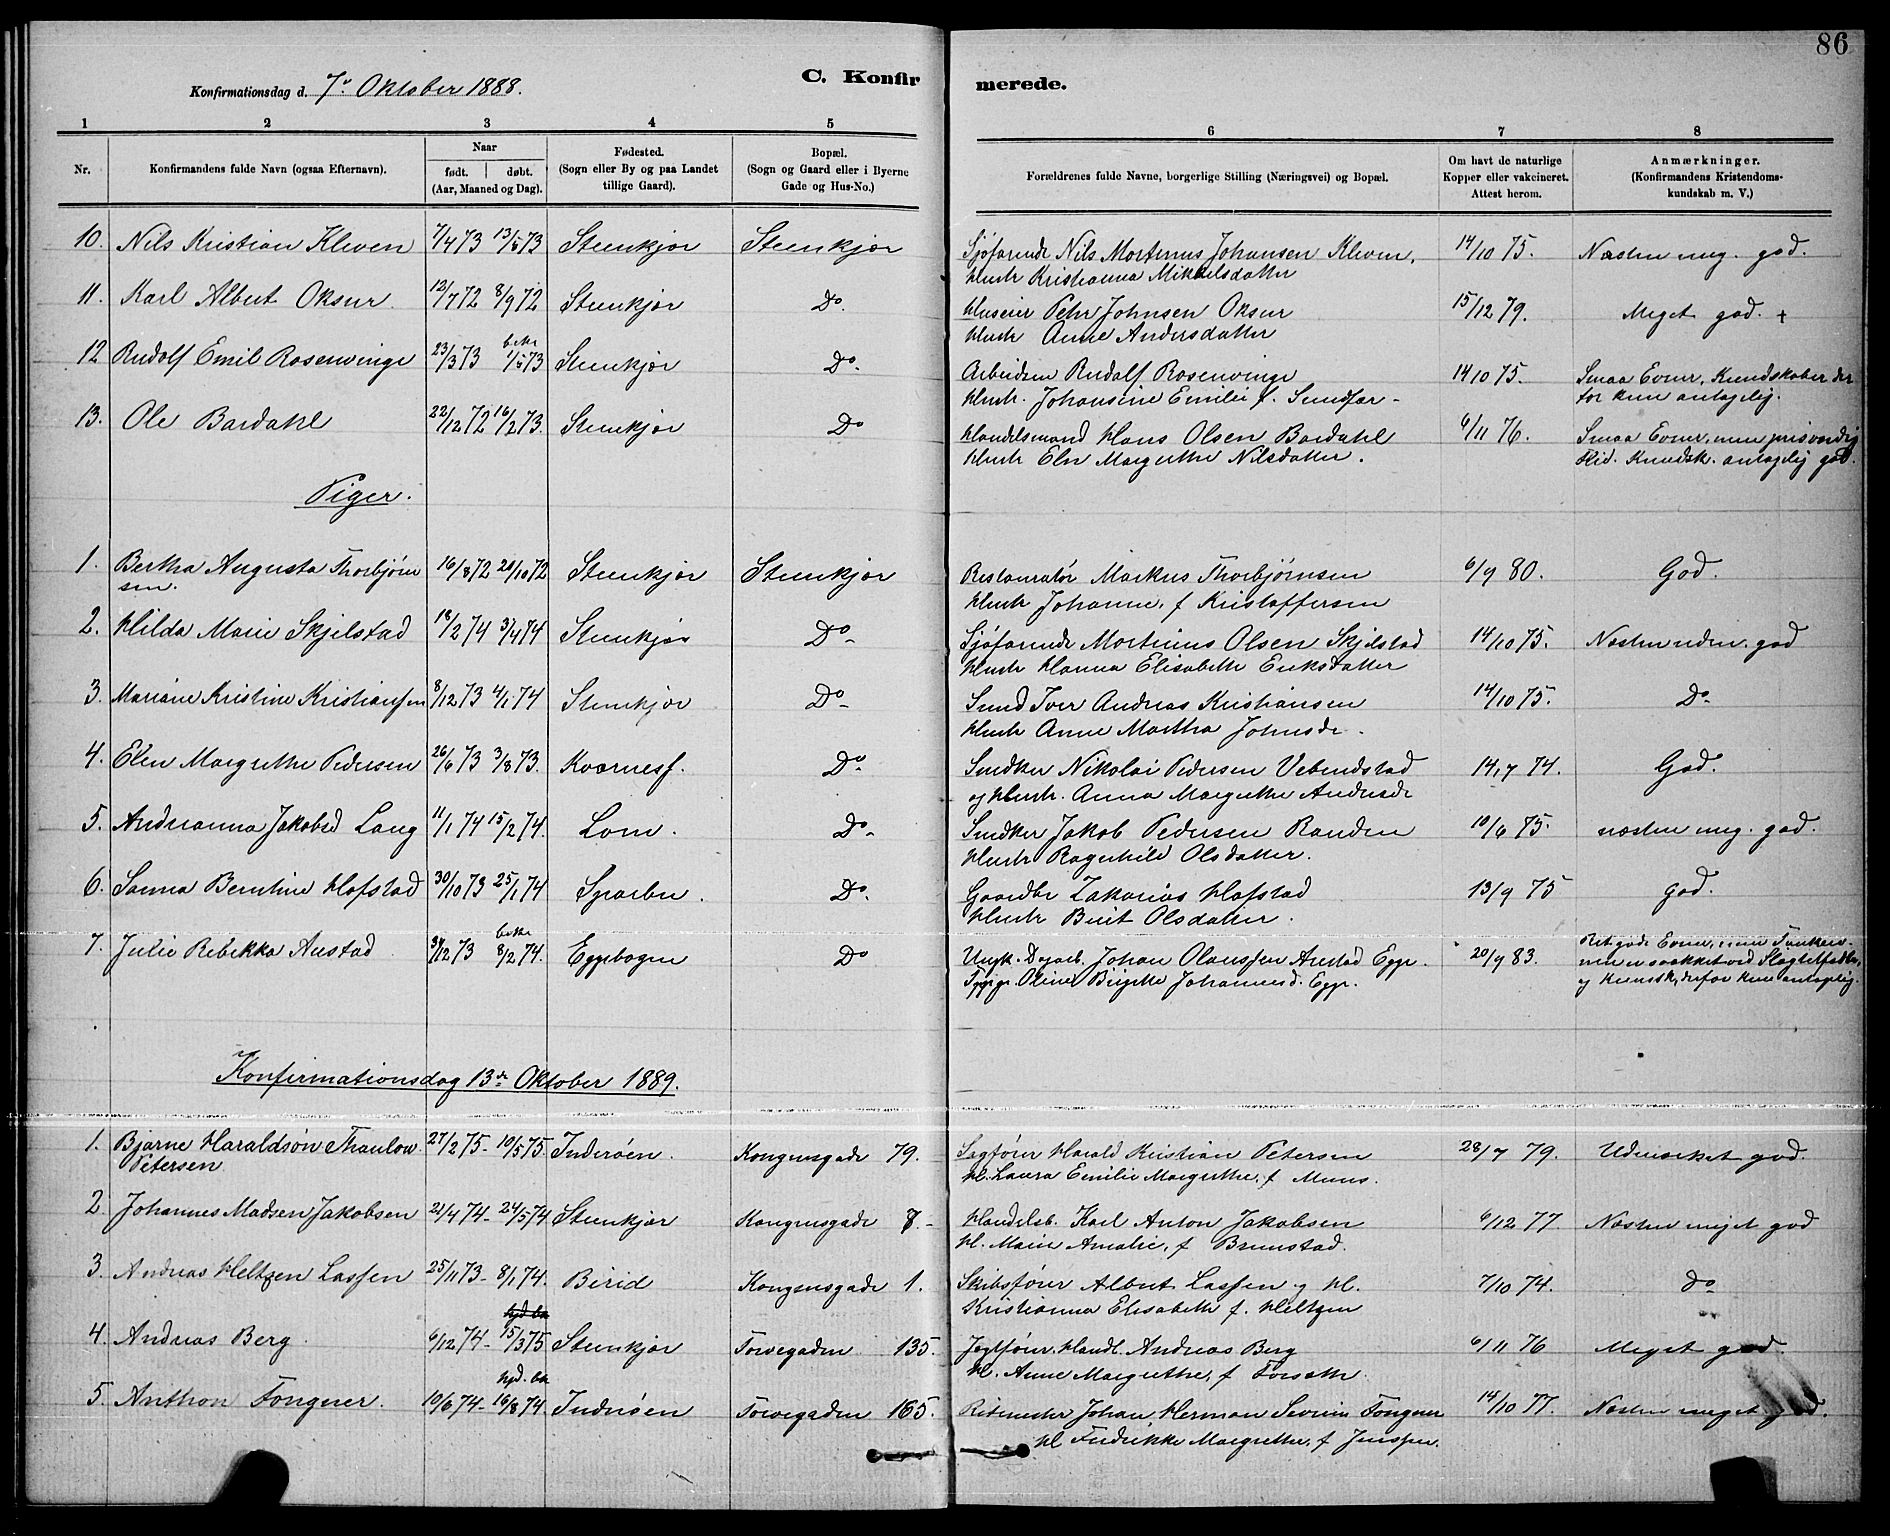 86
Konfirmationsdag d. 7de Oktober 1888.
C. Konfirmerede.
1 2 3 4 5 6 7 8
Nr. Konfirmandens fulde Navn (ogsaa Efternavn). Naar født. døbt. (Aar, Maaned og Dag). Fødested. (Sogn eller By og paa Landet tillige Gaard). Bopæl. (Sogn og Gaard eller i Byerne Gade og Hus-No.) Forældrenes fulde Navne, borgerlige Stilling (Næringsvei) og Bopæl. Om havt de naturlige Kopper eller vakcineret. Attest herom. Anmærkninger. (Konfirmandens Kristendomskundskab m. V.)
10. Nils Kristian Kleven 7/4 73 13/6 73 Stenkjær Stenkjær Sjøfarende Nils Mortinus Johansen Kleven, 14/10 75. Næsten meg. god.
Hustr Kristianna Mikkelsdatter
11. Karl Albert Oksur 12/7 72 8/9 72 Stenkjær Do. Huseier Petter Johnsen Oksur 15/12 79. Meget god. +
Hustr Anne Andersdatter
12 Rudolf Emil Rosenvinge 23/3 73 1/6 73 Stenkjær Do. Arbeidsm Rudolf Rosenvinge 14/10 75. Smaa Evner, Kundskaber der
Hustr. Johansine Emilie f. Sundfær - for kun antagelig.
13. Ole Bardahl 22/12 72 16/2 73. Stenkjær Do Handelsmand Hans Olsen Bardahl 6/11 76. Smaa Evner, men prisværdig
Hustr Elen Margrethe Nilsdatter. Flid. Kundsk. antagelig god.
Piger.
1. Bertha Augusta Thorbjørn 16/8 72 20/10 72 Stenkjær Stenkjær Restauratør Markus Thorbjørnsen 6/9 80. God.
sen. Hustr Johanne, f Kristoffersen
2. Hilda Marie Skjelstad 18/2 74 3/4 74 Stenkjær Do Sjøfarende Mortinus Olsen Skjelstad 14/10 75. Næsten uden. god
Hustr Hanna Elisabeth Eriksdatter
3. Mariane Kristine Kristiansen 8/12 73 4/1 74 Stenkjær Do Smed Iver Andreas Kristiansen 14/10 75. Do
Hustr Anne Martha Johnsdr.
4. Elen Margrethe Pedersen 26/6 73 3/8 73. Kvernesf. Do. Snedker Nikolai Pedersen Vebenstad 14/7 74. God.
og Hustr. Anna Margrethe Andersdr
5. Andrianna Jakobsd Laug 11/1 74 15/2 74. Lom. Do. Snedker Jakob Pedersen Randen 10/6 85. næsten meg. god.
Hustr Ragnhild Olsdatter.
6. Sanna Berntine Hofstad 30/10 73 25/1 74 Sparbu. Do. Gaardbr Zakarias Hofstad 13/9 75 god.
Hustr Berit Olsdatter.
7. Julie Rebekka Austad 31/12 73 8/2 74. Eggebogen Do Ungk. Dagarb. Johan Olaussen Austad Egge. 20/9 83. Ret gode Evner, men Tanken
Pige Oline Birgitte Johannesd. Egge. og Kundsk, derfor kun antagelig.
Konfirmationsdag 13de Oktober 1889.
1. Bjarne Haraldsøn Thaulow 27/2 75 - 10/5 75 Inderøen. Kongensgade 79. Sagfører Harald Kristian Petersen 28/7 79. Udmærket god.
Petersen Hl. Laura Emilie Margrethe, f Muus.
2. Johannes Madsen Jakobsen 21/4 74 - 24/5 74 Stenkjær Kongensgade 8. - Handelsb. Karl Anton Jakobsen 6/12 77. Næsten meget god
Hl. Marie Amalie, f Brunstad.
3. Andreas Heltzen Lassen 25/11 73 - 8/1 74. Birid Kongensgade 1. Skibsfører Albert Lassen og Hl. 7/10 74. do
Kristianna Elisabeth f. Heltzen
4. Andreas Berg 6/12 74 - 15/3 75 Stenkjær Torvegaden 135. Jagtfører, Handl. Andreas Berg 6/11 76 Meget god
Hl. Anne Margrethe, f Forseth
5. Anthon Fongner. 10/6 74 - 16/8 74 Inderøen Torvegaden 165. Ritmester Johan Herman Severin Fongner 14/10 77. Næsten meget god.
Hl Fredrikke Margrethe, f Jenssen.